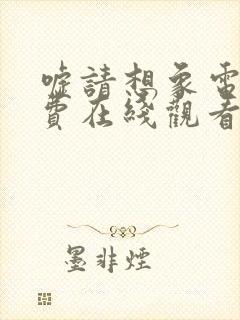 嘘請想象電
費在綫觀看
墨非煙